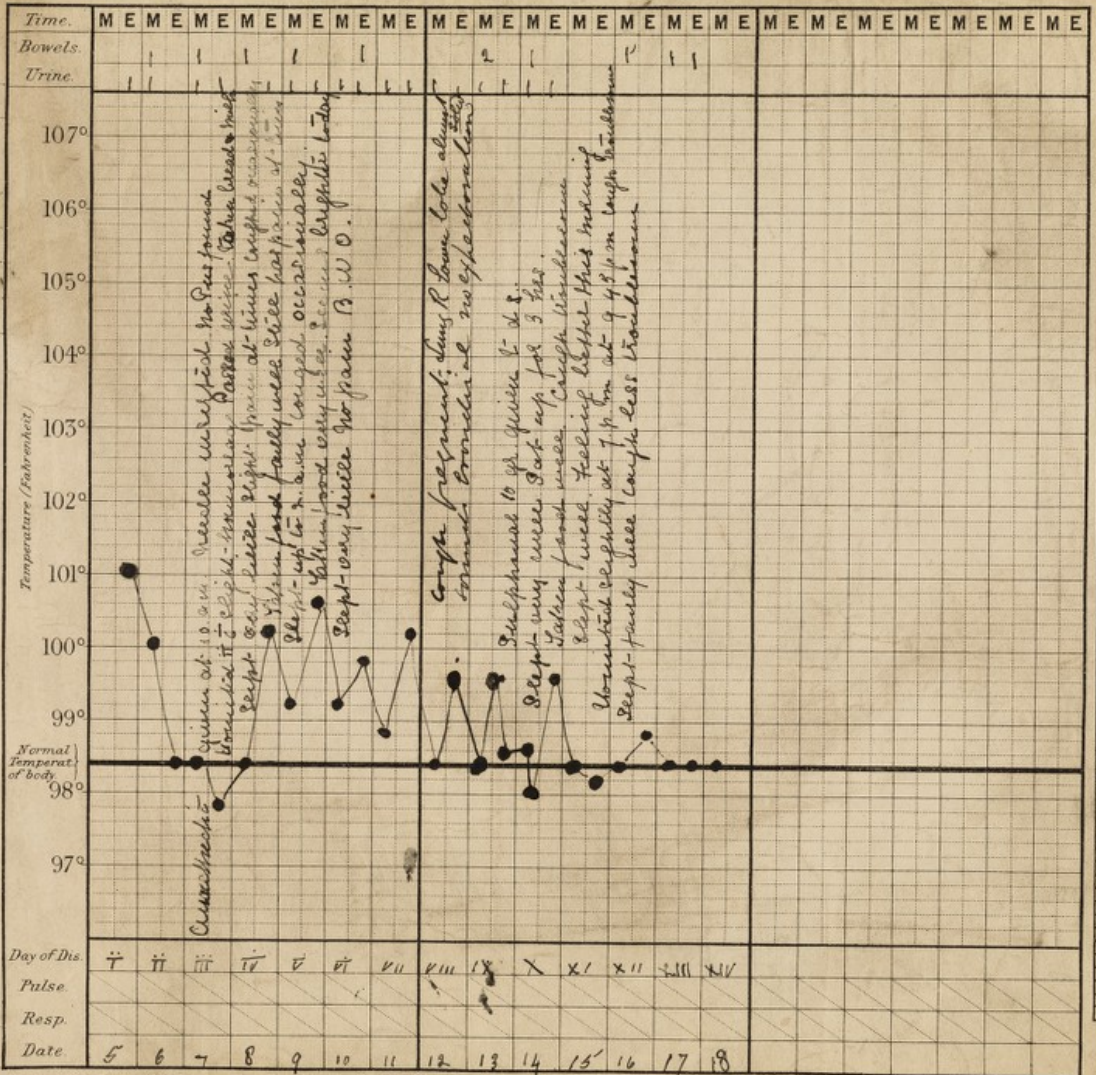 Time. M E M E M E M E M E M E M E M E M E M E M E M E M E M E M E M E M E M E M E M E M E
Bowels. 1 1 1 1 1 2 1 1 1 1
Urine.
107°
106°
105°
104°
103°
102°
101°
100°
99°
98°
97°
Temperature (Fahrenheit)
Normal
Temperat.
of body
given at 10 a.m. needle inserted no Pus found
Passed urine. Taken bread & milk
Slept very little slight pain at times coughed occasionally
Taken food fairly well still has pain at
Slept up to 2 a.m. coughed occasionally
Taken food very well Seems brighter today
Slept very little No pain B.W.O.
Cough frequent: Lung R Lower lobe almost
solid
sounds bronchial no expectoration
Sulphonal 10 gr given
Slept very well Sat up for 3 hrs.
Taken food well. Cough troublesome
Slept well. Feeling better this morning
Vomited slightly at 7 p.m at 9 45 pm cough troublesome
Slept fairly well Cough less troublesome
Day of Dis. I II III IV V VI VII VIII IX X XI XII XIII XIV
Pulse.
Resp.
Date. 5 6 7 8 9 10 11 12 13 14 15 16 17 18